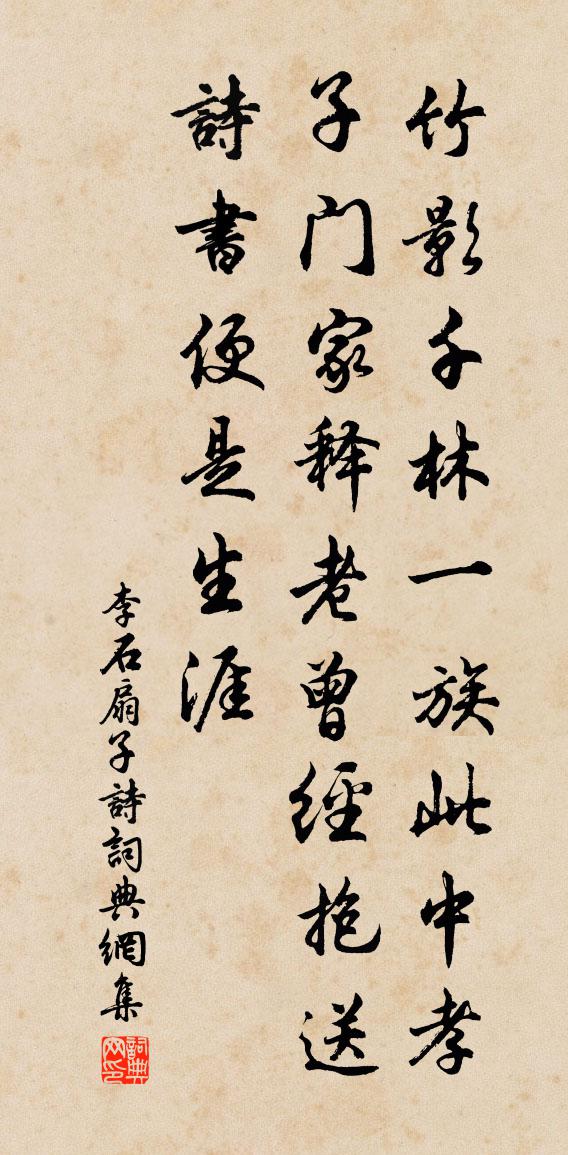 竹影千林一族此中孝
子门家释老曾經抱送
詩書便是生涯
李石扇子詩詞典網集
詞典网印